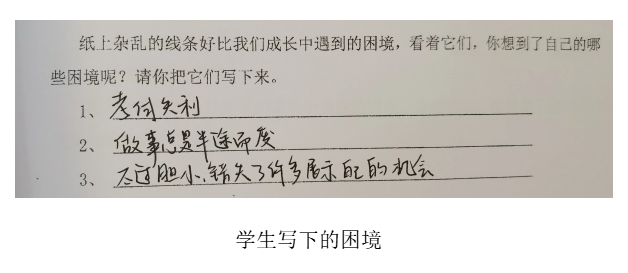 纸上杂乱的线条好比我们成长中遇到的困境，看着它们，你想到了自己的哪
些困境呢？请你把它们写下来。
1、考试失利
2、做事总是半途而废
3、不过胆小，错失了许多展示自己的机会
学生写下的困境